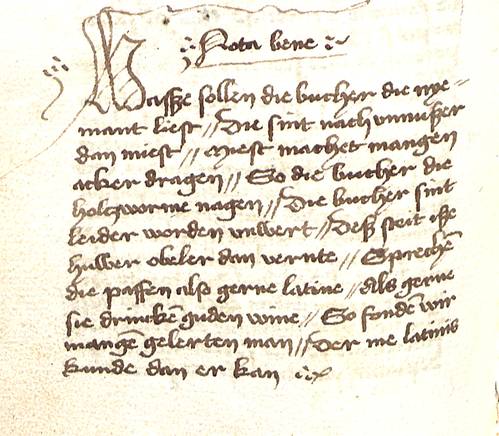 Nota bene
Wasße sollen die bucher die nye-
mant liest // Die sint nach vnnutzer
dan miest // Miest machet mangen
acker dragen // So die bucher die
holtzworme nagen // Die bucher sint
leider worden vnwert // Deß steit iße
huwer obeler dan vernte // Sprechē
die paffen also gerne latine // Als gerne
sie drinckē guden wine // So fondē wir
mangē gelerten man // Der me latinis
kunde dan er kan